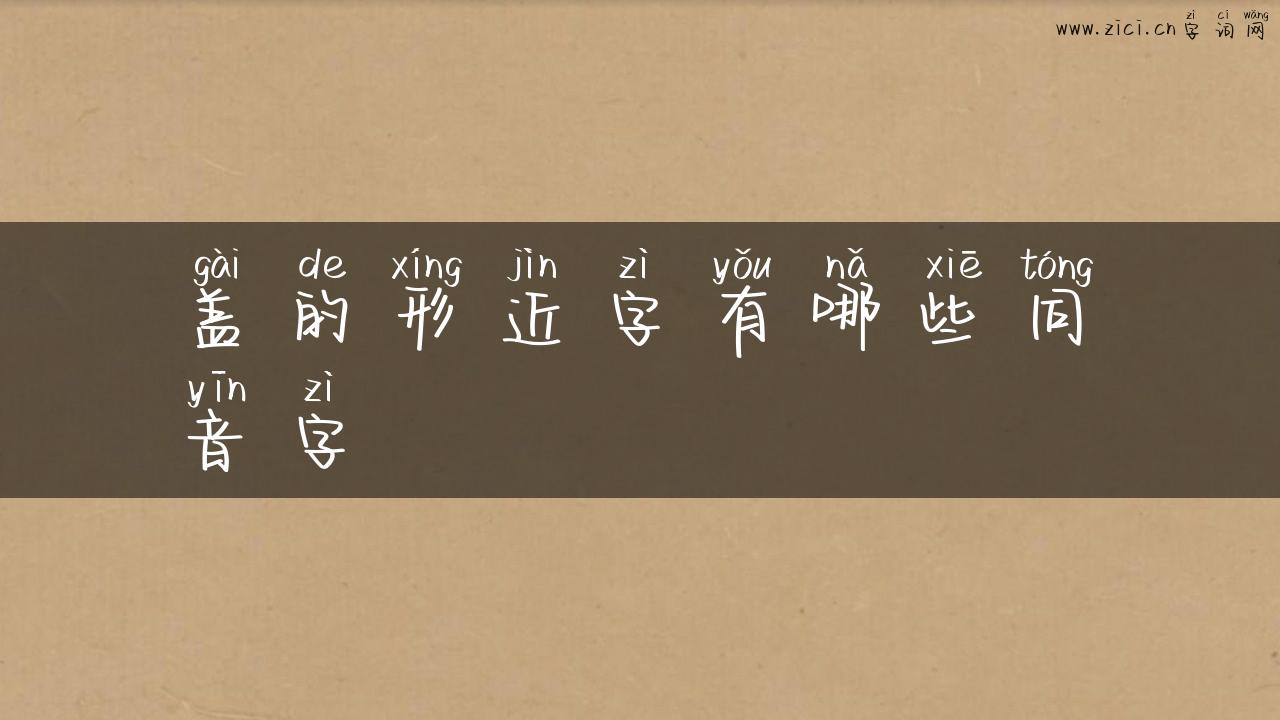 zì cí wǎng
www.zici.cn 字 词 网
gài de xíng jìn zì yǒu nǎ xiē tóng
盖 的 形 近 字 有 哪 些 同
yīn zì
音 字